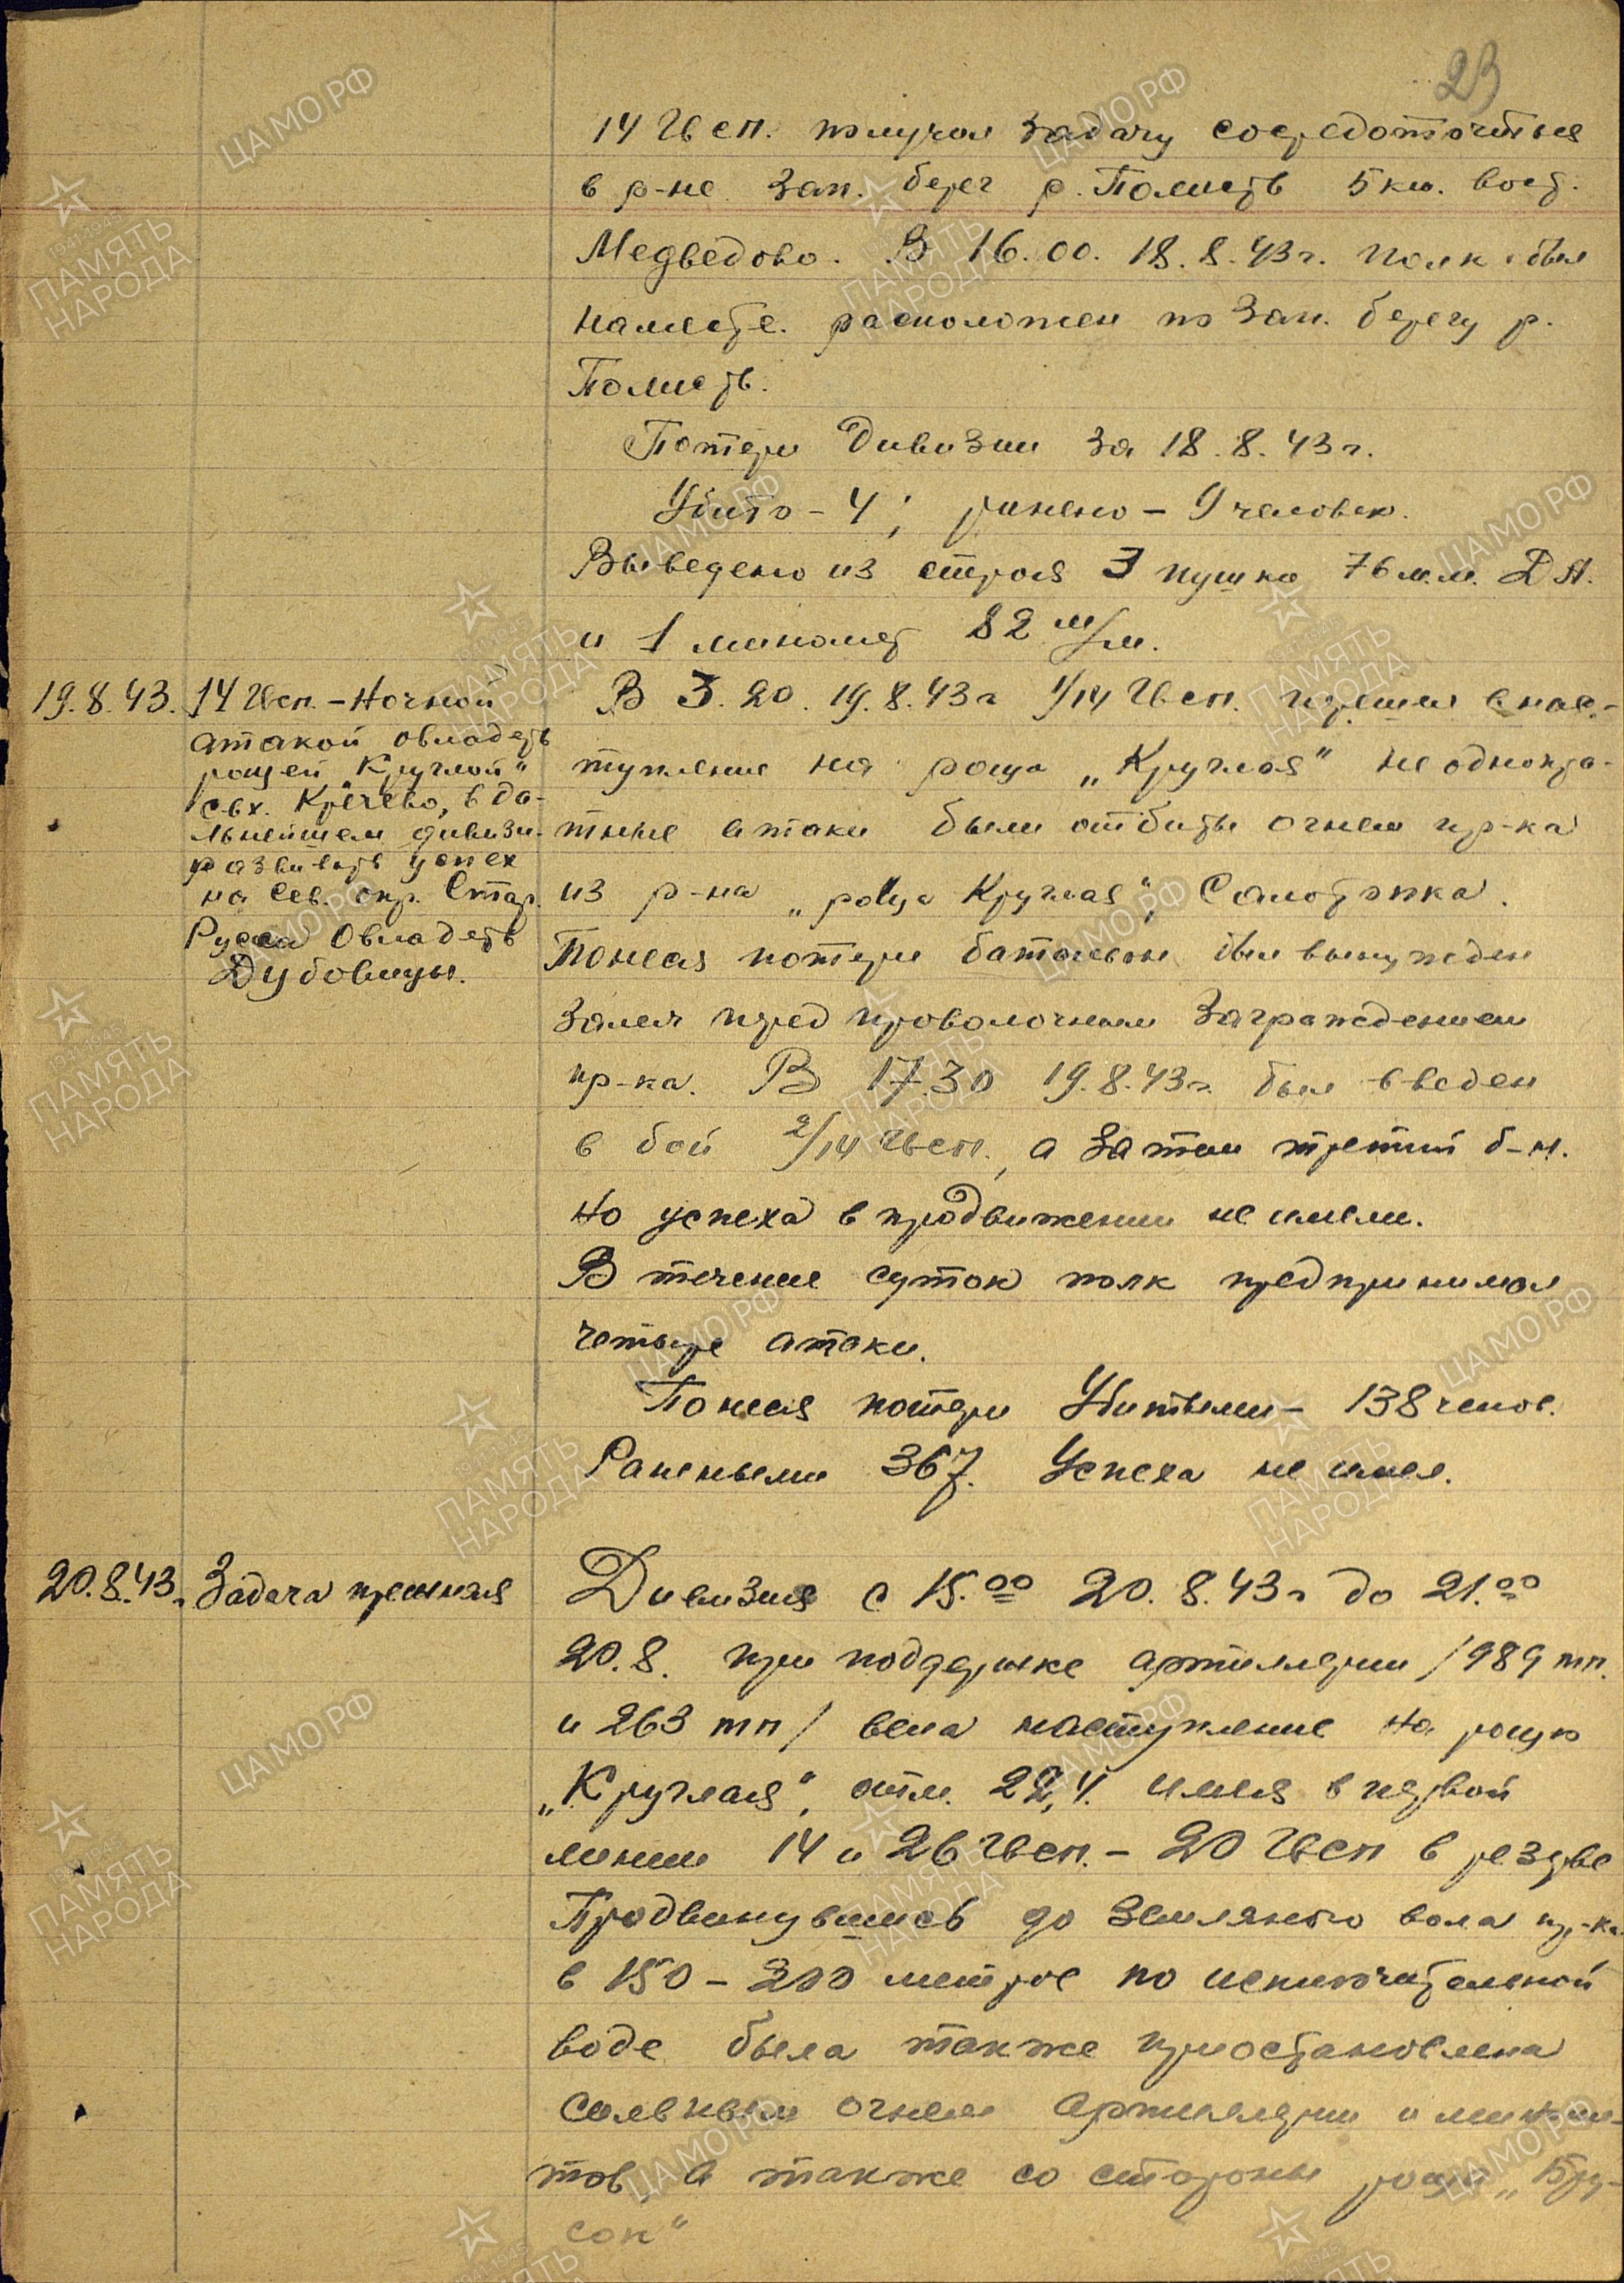 23
14 Гв сп. получил задачу сосредоточиться
в р-не зап. берег р. Полисть 5 км. вост.
Медведово. В 16.00. 18.8.43г. полк был
на месте. расположен по зап. берегу р.
Полисть.
Потери дивизии за 18.8.43г.
Убито - 4; ранено - 9 человек.
Выведено из строя 3 пушки 76 м.м. ДА.
и 1 миномет 82 м/м.
19.8.43. 14 Гвсп. - Ночной
атакой овладеть
рощей "Круглой"
свх. Кречево, в да-
льнейшем дивизи.
развивать успех
на Сев. окр. Стар.
Русса Овладеть
Дубовицы.
В 3.20. 19.8.43г 1/14 Гв сп. перешел в нас-
тупление на роща „Круглая" неоднокра-
тные атаки были отбиты огнем пр-ка
из р-на „роща Круглая", Самотопка.
Понеся потери батальон был вынужден
залечь перед проволочным заграждением
пр-ка. В 17.30 19.8.43г. был введен
в бой 2/14 Гвсп., а затем третий б-н.
но успеха в продвижении не имели.
В течение суток полк предпринимал
четыре атаки.
Понеся потери Убитыми - 138 челов.
Ранеными 367. Успеха не имел.
20.8.43г. Задача прежняя
Дивизия с 15.00 20.8.43г до 21.00
20.8. при поддержке артиллерии /989 тп.
и 263 тп/ вела наступление на рощу
„Круглая", отм. 22,4. имея в первой
линии 14 и 26 Гвсп. - 20 Гвсп в резерве
Продвинувшись до земляного вала пр-ка
в 150 - 200 метров по исключительной
воде была также приостановлена
сильным огнем артиллерии и миноме-
тов, а также со стороны рощи „Бру-
сок"
ЦАМО РФ
1941-1945
ПАМЯТЬ
НАРОДА